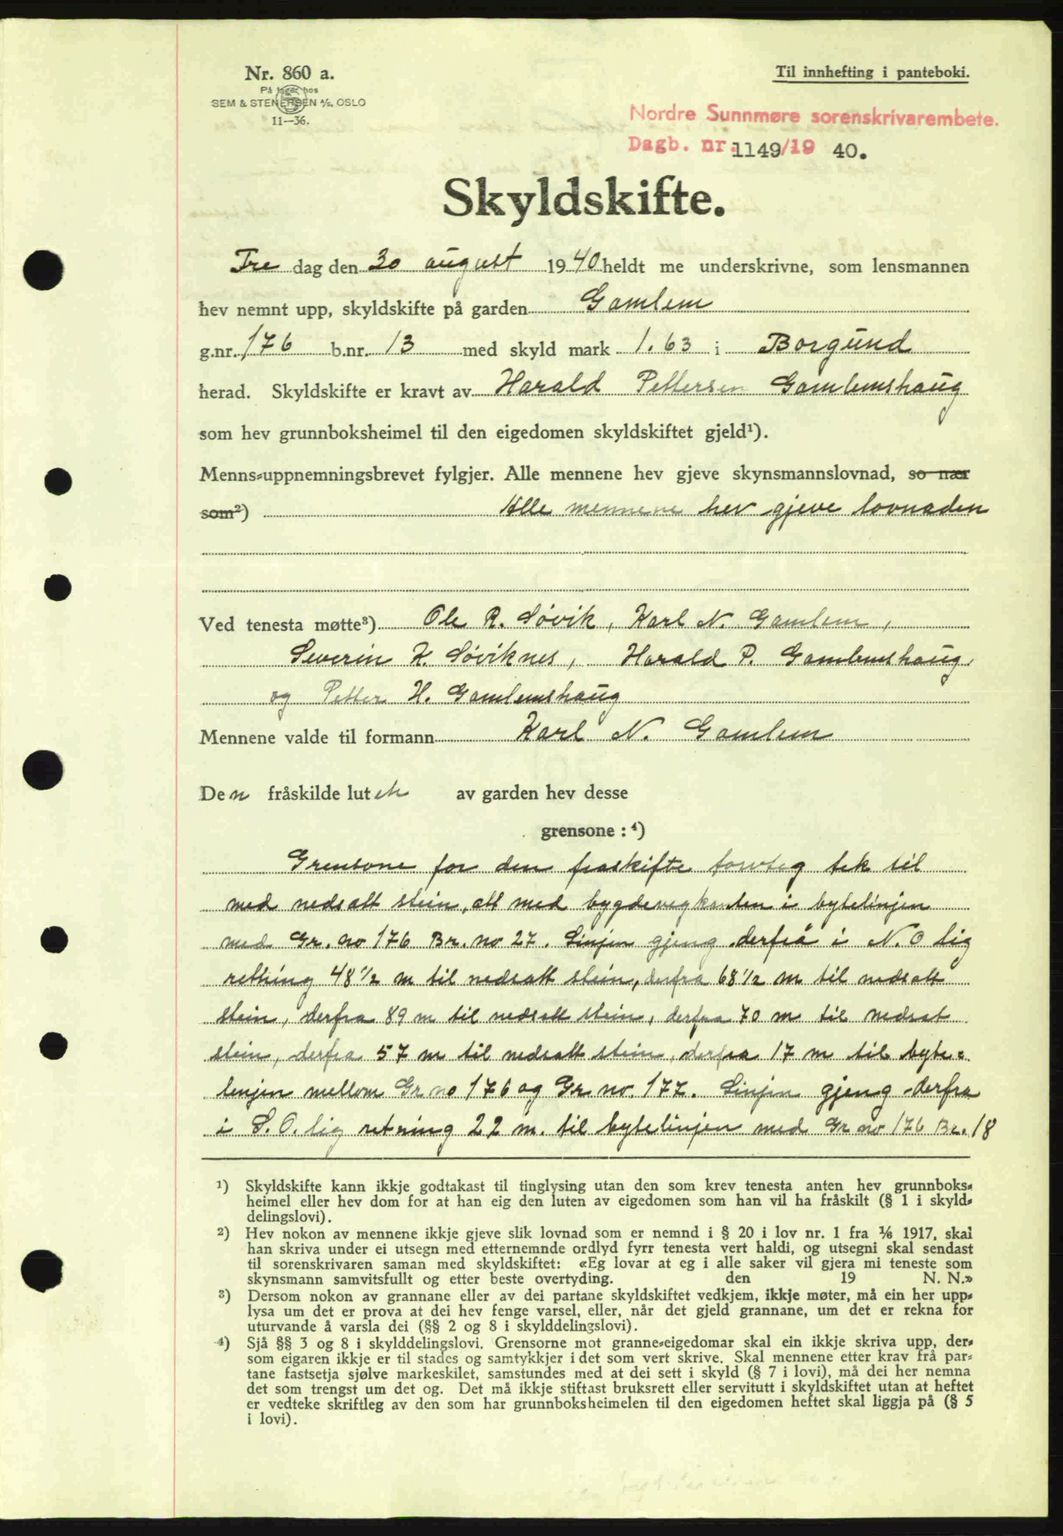 Nr. 860 a.
På lager hos
SEM & STENERSEN A/S, OSLO
11—36.
Til innhefting i panteboki.
Nordre Sunnmøre sorenskrivarembete.
Dagb. nr. 1149/19 40.
Skyldskifte.
Fre dag den 30 august 1940 heldt me underskrivne, som lensmannen
hev nemnt upp, skyldskifte på garden Gamlem
g.nr. 176 b.nr. 13 med skyld mark 1.63 i Borgund
herad. Skyldskifte er kravt av Harald Pettersen Gamlemshaug
som hev grunnboksheimel til den eigedomen skyldskiftet gjeld¹).
Menns-uppnemningsbrevet fylgjer. Alle mennene hev gjeve skynsmannslovnad, so nær
som²) Alle mennene hev gjeve lovnaden
Ved tenesta møtte³) Ole R. Søvik, Karl N. Gamlem,
Severin K. Søviknes, Harald P. Gamlemshaug,
og Petter H. Gamlemshaug
Mennene valde til formann Karl N. Gamlem
Den fråskilde luten av garden hev desse
grensone : ⁴)
Grensone for den fraskifte tek til
med nedsatt stein, att med bygdevegkanten i bytelinjen
med Gr. no 176 Br. no 27. Linjen gjeng derfrå i N.O lig
retning 48 1/2 m til nedsatt stein, derfra 68 1/2 m til nedsatt
stein, derfra 89 m til nedsatt stein, derfra 70 m til nedsat
stein, derfra 57 m til nedsatt stein, derfra 17 m til byte-
linjen mellom Gr. no 176 og Gr. no. 177. Linjen gjeng derfra
i S.O. lig retning 22 m. til bytelinjen med Gr no 176 Br. 18
¹) Skyldskifte kann ikkje godtakast til tinglysing utan den som krev tenesta anten hev grunnboks-
heimel eller hev dom for at han eig den luten av eigedomen som han vil ha fråskilt (§ 1 i skyld-
delingslovi).
²) Hev nokon av mennene ikkje gjeve slik lovnad som er nemnd i § 20 i lov nr. 1 fra 1/6 1917, skal
han skriva under ei utsegn med etternemnde ordlyd fyrr tenesta vert haldi, og utsegni skal sendast
til sorenskrivaren saman med skyldskiftet: «Eg lovar at eg i alle saker vil gjera mi teneste som
skynsmann samvitsfullt og etter beste overtyding. den 19 N. N.»
³) Dersom nokon av grannane eller av dei partane skyldskiftet vedkjem, ikkje møter, må ein her upp-
lysa um det er prova at dei hev fenge varsel, eller, når det gjeld grannane, um det er rekna for
uturvande å varsla dei (§§ 2 og 8 i skylddelingslovi).
⁴) Sjå §§ 3 og 8 i skylddelingslovi. Grensorne mot granne-eigedomar skal ein ikkje skriva upp, der-
som eigaren ikkje er til stades og samtykkjer i det som vert skrive. Skal mennene etter krav frå par-
tane fastsetja sjølve markeskilet, samstundes med at dei sett i skyld (§ 7 i lovi), må dei her nemna
det som trengst um det og. Det må ikkje stiftast bruksrett eller servitutt i skyldskiftet utan at heftet
er vedteke skriftleg av den som har grunnboksheimelen til den eigedomen heftet skal liggja på (§ 5
i lovi).